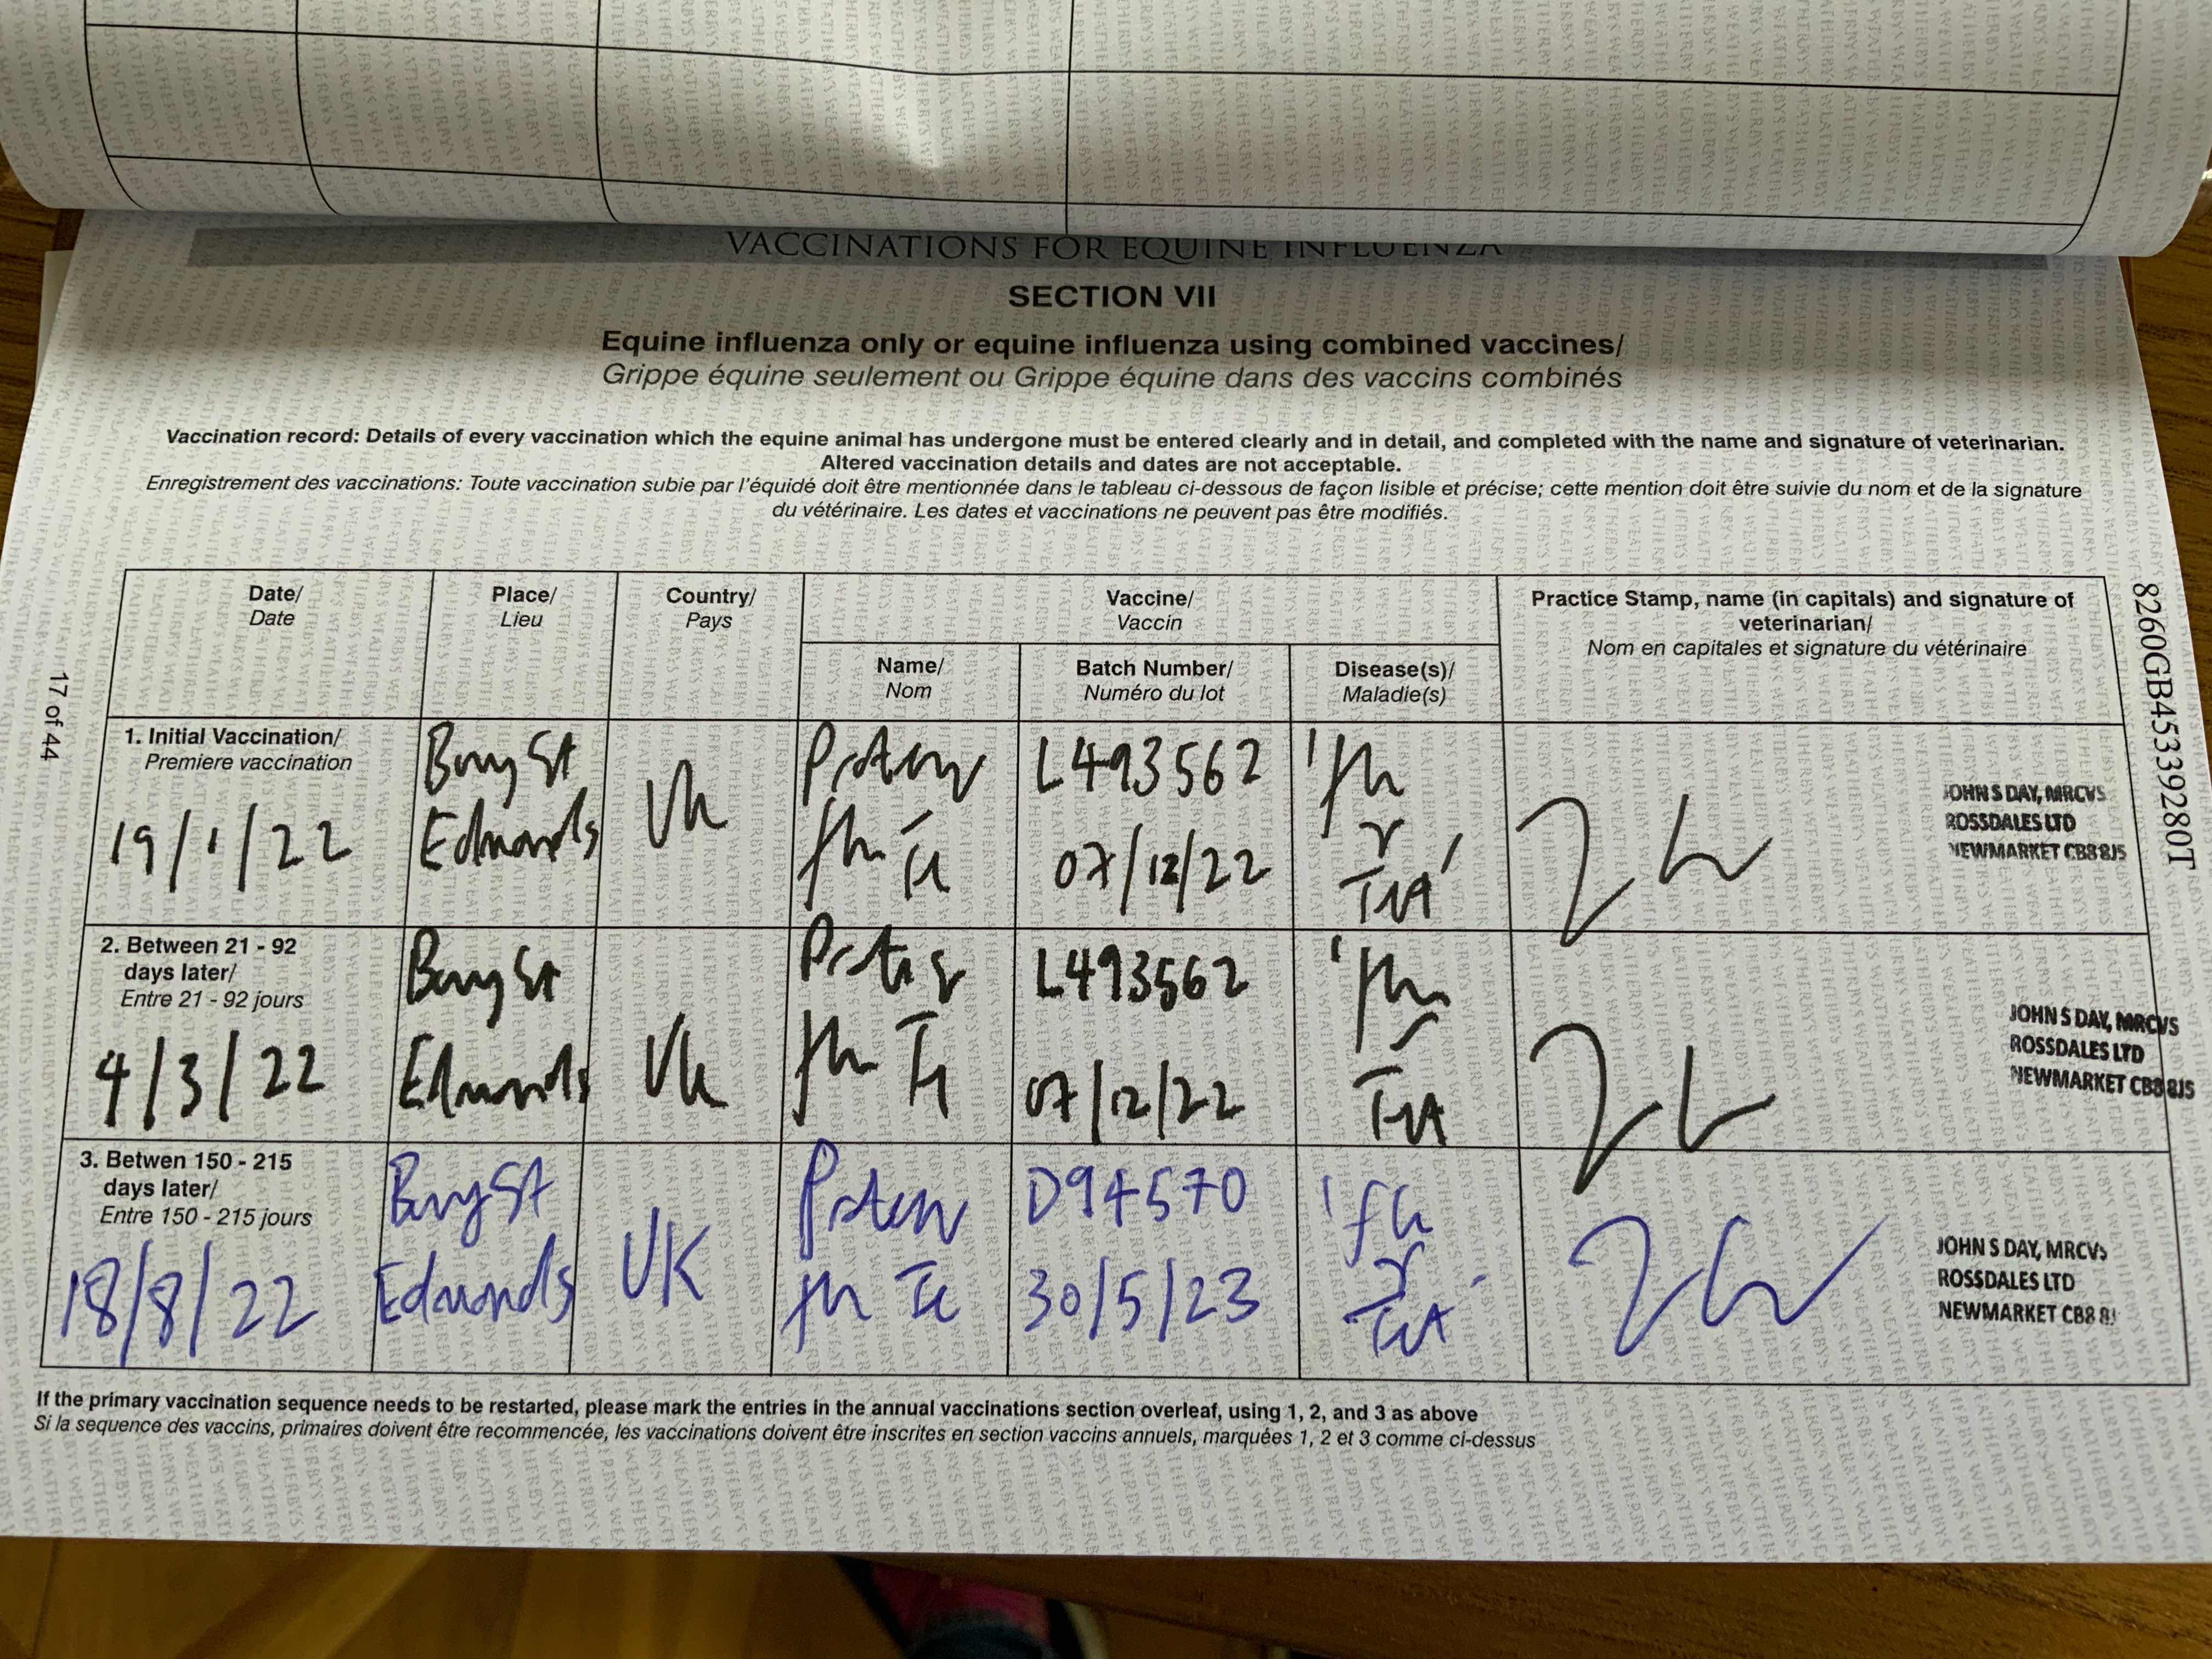 VACCINATIONS FOR EQUINE INFLUENZA
SECTION VII
Equine influenza only or equine influenza using combined vaccines/
Grippe équine seulement ou Grippe équine dans des vaccins combinés
Vaccination record: Details of every vaccination which the equine animal has undergone must be entered clearly and in detail, and completed with the name and signature of veterinarian.
Altered vaccination details and dates are not acceptable.
Enregistrement des vaccinations: Toute vaccination subie par l'équidé doit être mentionnée dans le tableau ci-dessous de façon lisible et précise; cette mention doit être suivie du nom et de la signature
du vétérinaire. Les dates et vaccinations ne peuvent pas être modifiés.
Date/
Date
Place/
Lieu
Country/
Pays
Vaccine/
Vaccin
Name/
Nom
Batch Number/
Numéro du lot
Disease(s)/
Maladie(s)
Practice Stamp, name (in capitals) and signature of
veterinarian/
Nom en capitales et signature du vétérinaire
1. Initial Vaccination/
Premiere vaccination
19/1/22
Bury St
Edmonds
UK
L493562
07/12/22
JOHN S DAY, MRCVS
ROSSDALES LTD
NEWMARKET CB8 8JS
2. Between 21 - 92
days later/
Entre 21 - 92 jours
4/3/22
Bury St
Edmonds
UK
L493562
07/12/22
JOHN S DAY, MRCVS
ROSSDALES LTD
NEWMARKET CB8 8JS
3. Betwen 150 - 215
days later/
Entre 150 - 215 jours
18/8/22
Bury St
Edmonds
UK
D94570
30/5/23
JOHN S DAY, MRCVS
ROSSDALES LTD
NEWMARKET CB8 8J
If the primary vaccination sequence needs to be restarted, please mark the entries in the annual vaccinations section overleaf, using 1, 2, and 3 as above
Si la sequence des vaccins, primaires doivent être recommencée, les vaccinations doivent être inscrites en section vaccins annuels, marquées 1, 2 et 3 comme ci-dessus
17 of 44
8260GB45339280T